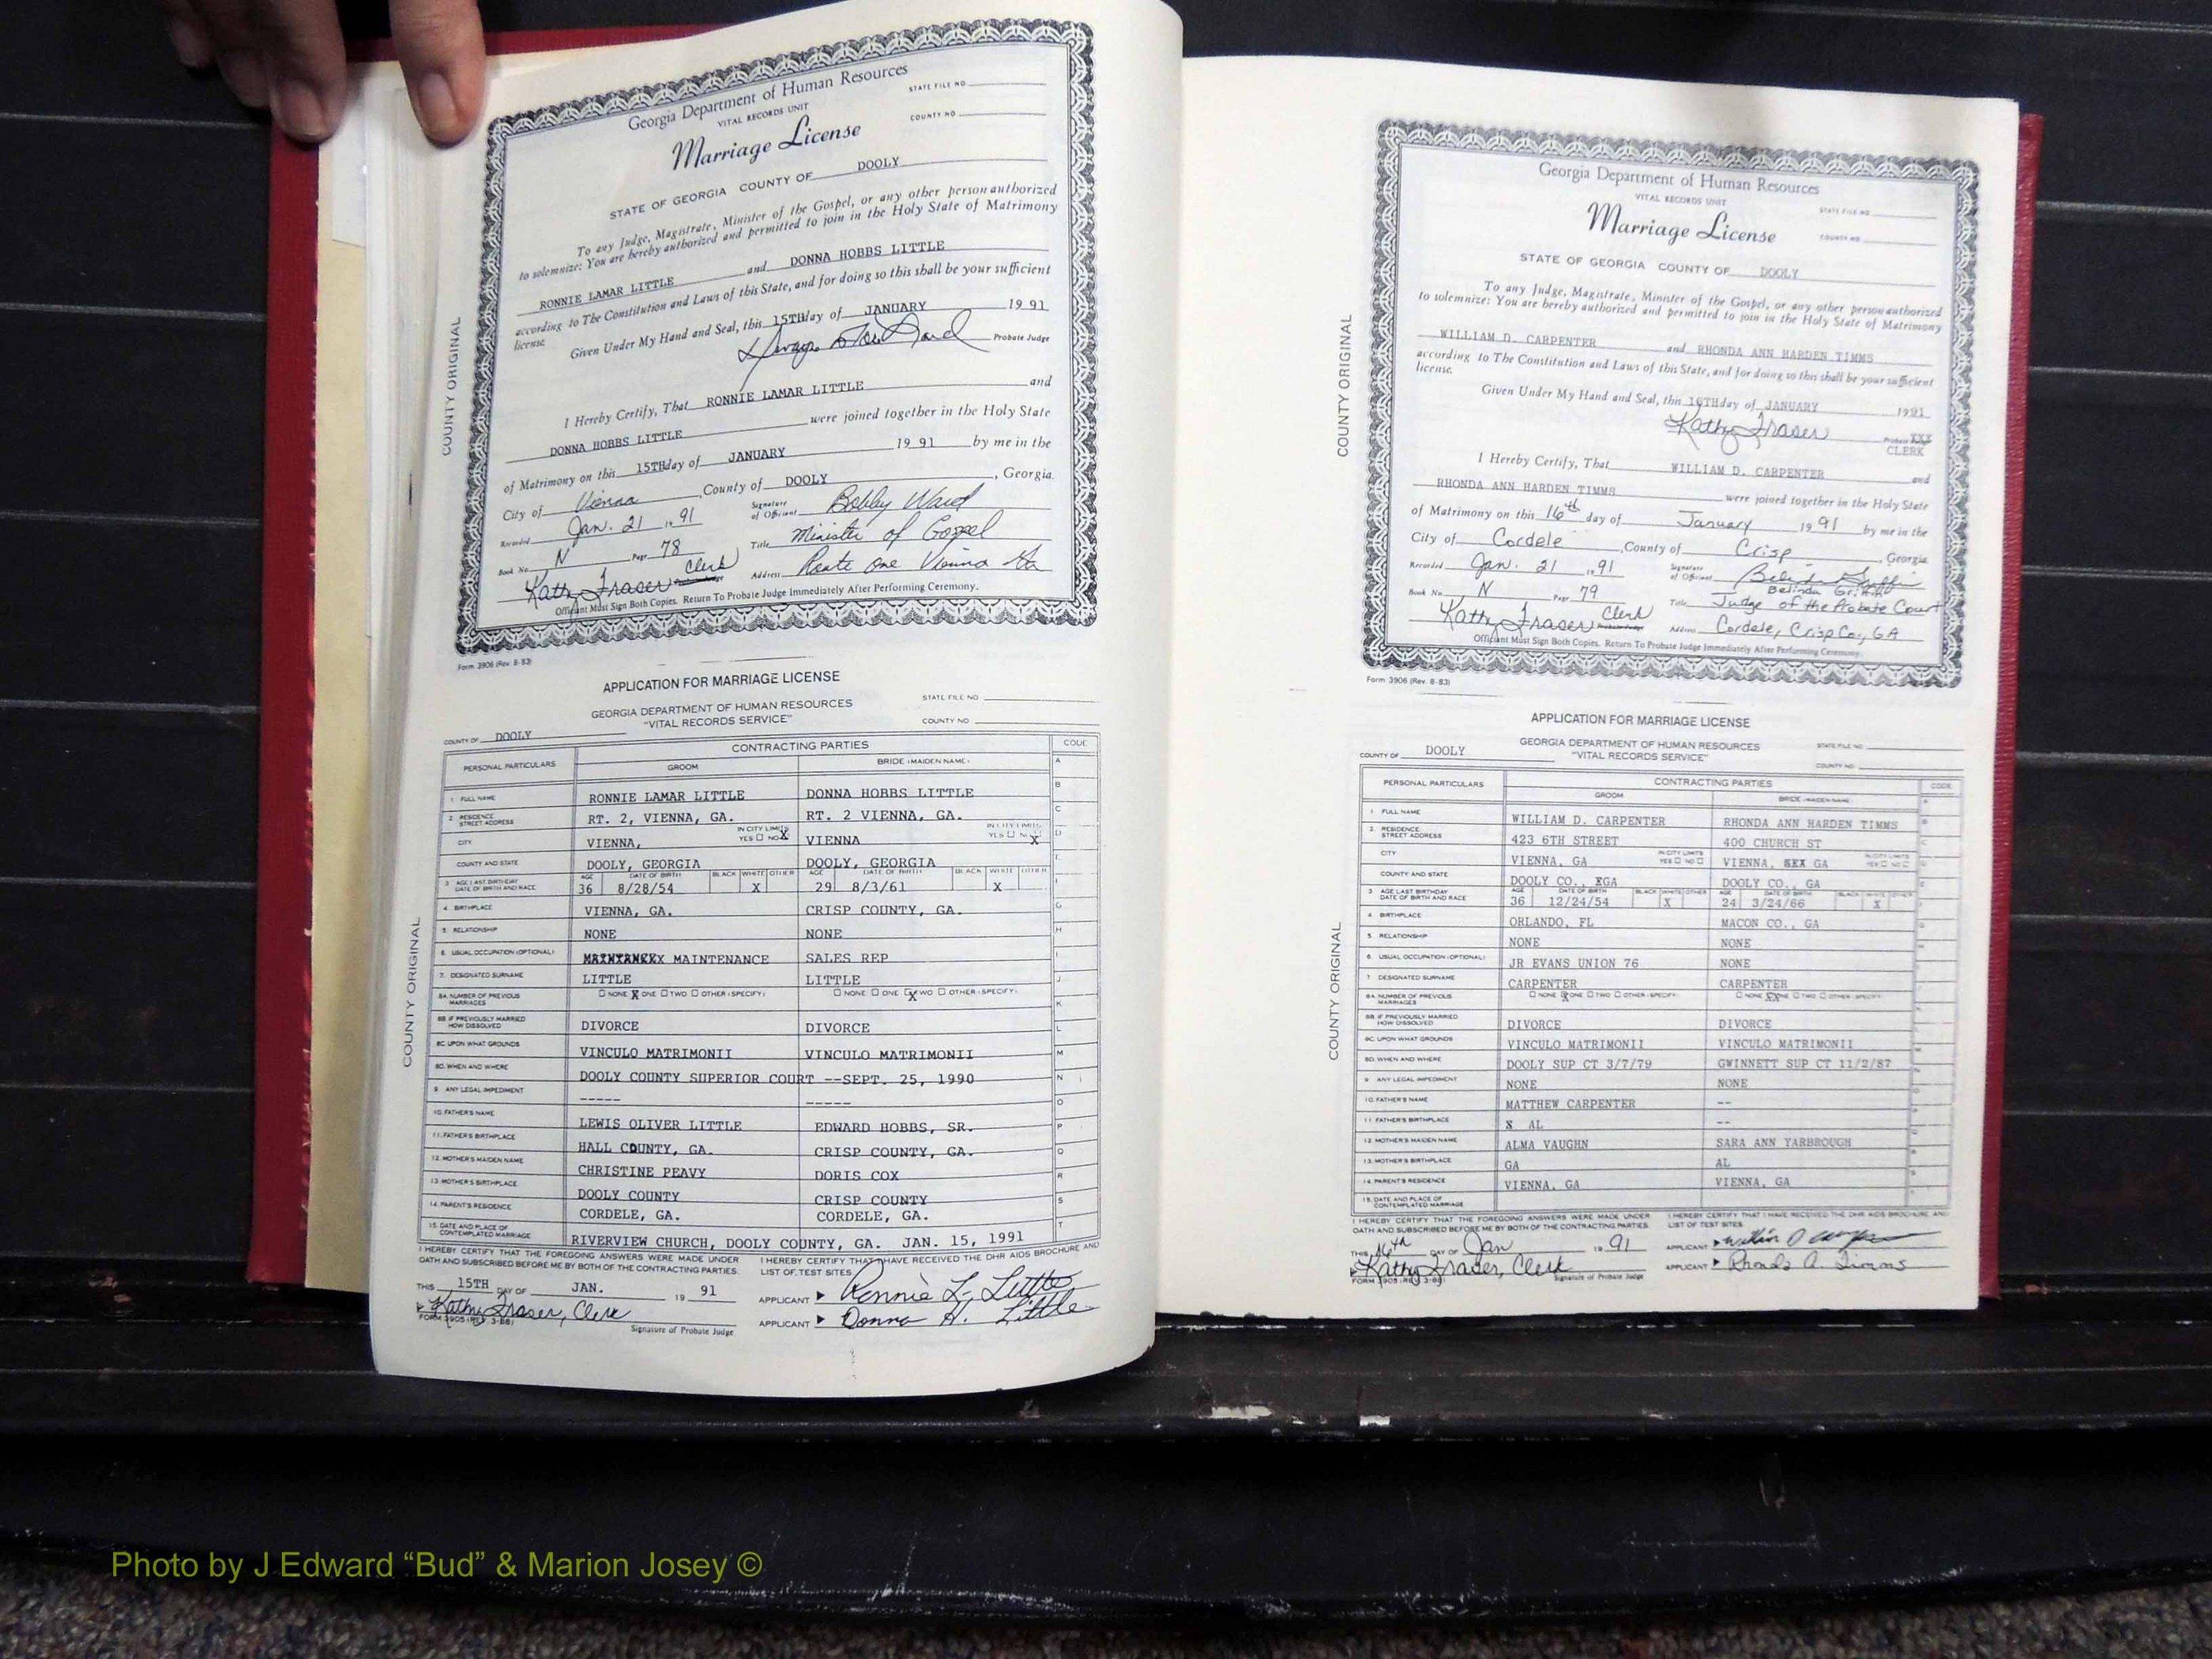 Georgia Department of Human Resources
VITAL RECORDS UNIT
STATE FILE NO.
COUNTY NO.
Marriage License
STATE OF GEORGIA COUNTY OF DOOLY
To any Judge, Magistrate, Minister of the Gospel, or any other person authorized
to solemnize: You are hereby authorized and permitted to join in the Holy State of Matrimony
RONNIE LAMAR LITTLE and DONNA HOBBS LITTLE
according to The Constitution and Laws of this State, and for doing so this shall be your sufficient
license.
Given Under My Hand and Seal, this 15TH day of JANUARY 19 91
Probate Judge
I Hereby Certify, That RONNIE LAMAR LITTLE and
DONNA HOBBS LITTLE were joined together in the Holy State
of Matrimony on this 15TH day of JANUARY 19 91 by me in the
City of Vienna, County of DOOLY, Georgia.
Recorded Jan. 21 1991 Signature of Officiant Bobby Ward
Book No. N Page 78 Title Minister of Gospel
Kathy Fraser Clerk Address Route One Vienna Ga
Officiant Must Sign Both Copies. Return To Probate Judge Immediately After Performing Ceremony.
COUNTY ORIGINAL
Form 3906 (Rev. 8-83)
APPLICATION FOR MARRIAGE LICENSE
GEORGIA DEPARTMENT OF HUMAN RESOURCES
"VITAL RECORDS SERVICE"
STATE FILE NO
COUNTY NO
COUNTY OF DOOLY
PERSONAL PARTICULARS CONTRACTING PARTIES CODE
GROOM BRIDE (MAIDEN NAME)
1 FULL NAME RONNIE LAMAR LITTLE DONNA HOBBS LITTLE
2 RESIDENCE STREET ADDRESS RT. 2, VIENNA, GA. RT. 2 VIENNA, GA.
CITY VIENNA, IN CITY LIMITS YES ☐ NO X VIENNA IN CITY LIMITS YES ☐ NO X
COUNTY AND STATE DOOLY, GEORGIA DOOLY, GEORGIA
3 AGE LAST BIRTHDAY DATE OF BIRTH AND RACE AGE 36 DATE OF BIRTH 8/28/54 BLACK WHITE X OTHER AGE 29 DATE OF BIRTH 8/3/61 BLACK WHITE X OTHER
4 BIRTHPLACE VIENNA, GA. CRISP COUNTY, GA.
5 RELATIONSHIP NONE NONE
6 USUAL OCCUPATION (OPTIONAL) MAINTENANCE SALES REP
7. DESIGNATED SURNAME LITTLE LITTLE
8A. NUMBER OF PREVIOUS MARRIAGES ☐ NONE X ONE ☐ TWO ☐ OTHER (SPECIFY) ☐ NONE ☐ ONE X TWO ☐ OTHER (SPECIFY)
8B IF PREVIOUSLY MARRIED HOW DISSOLVED DIVORCE DIVORCE
8C. UPON WHAT GROUNDS VINCULO MATRIMONII VINCULO MATRIMONII
8D. WHEN AND WHERE DOOLY COUNTY SUPERIOR COURT --SEPT. 25, 1990
9 ANY LEGAL IMPEDIMENT ----- -----
10. FATHER'S NAME LEWIS OLIVER LITTLE EDWARD HOBBS, SR.
11. FATHER'S BIRTHPLACE HALL COUNTY, GA. CRISP COUNTY, GA.
12. MOTHER'S MAIDEN NAME CHRISTINE PEAVY DORIS COX
13. MOTHER'S BIRTHPLACE DOOLY COUNTY CRISP COUNTY
14. PARENT'S RESIDENCE CORDELE, GA. CORDELE, GA.
15. DATE AND PLACE OF CONTEMPLATED MARRIAGE RIVERVIEW CHURCH, DOOLY COUNTY, GA. JAN. 15, 1991
I HEREBY CERTIFY THAT THE FOREGOING ANSWERS WERE MADE UNDER
OATH AND SUBSCRIBED BEFORE ME BY BOTH OF THE CONTRACTING PARTIES.
I HEREBY CERTIFY THAT I HAVE RECEIVED THE DHR AIDS BROCHURE AND
LIST OF TEST SITES
THIS 15TH DAY OF JAN. 19 91
APPLICANT Ronnie L. Little
Kathy Fraser, Clerk
APPLICANT Donna H. Little
FORM 3905 (REV. 3-88) Signature of Probate Judge
COUNTY ORIGINAL
Georgia Department of Human Resources
VITAL RECORDS UNIT
STATE FILE NO.
COUNTY NO.
Marriage License
STATE OF GEORGIA COUNTY OF DOOLY
To any Judge, Magistrate, Minister of the Gospel, or any other person authorized
to solemnize: You are hereby authorized and permitted to join in the Holy State of Matrimony
WILLIAM D. CARPENTER and RHONDA ANN HARDEN TIMMS
according to The Constitution and Laws of this State, and for doing so this shall be your sufficient
license.
Given Under My Hand and Seal, this 16TH day of JANUARY 1991
Kathy Fraser Probate XXX
CLERK
I Hereby Certify, That WILLIAM D. CARPENTER and
RHONDA ANN HARDEN TIMMS were joined together in the Holy State
of Matrimony on this 16th day of January 19 91 by me in the
City of Cordele, County of Crisp, Georgia
Recorded Jan. 21 1991 Signature of Officiant Belinda Griffin
Belinda Griffin
Book No. N Page 79 Title Judge of the Probate Court
Kathy Fraser Clerk Address Cordele, Crisp Co., GA
Officiant Must Sign Both Copies. Return To Probate Judge Immediately After Performing Ceremony.
COUNTY ORIGINAL
Form 3906 (Rev. 8-83)
APPLICATION FOR MARRIAGE LICENSE
GEORGIA DEPARTMENT OF HUMAN RESOURCES
"VITAL RECORDS SERVICE"
STATE FILE NO
COUNTY NO
COUNTY OF DOOLY
PERSONAL PARTICULARS CONTRACTING PARTIES CODE
GROOM BRIDE (MAIDEN NAME)
1 FULL NAME WILLIAM D. CARPENTER RHONDA ANN HARDEN TIMMS
2. RESIDENCE STREET ADDRESS 423 6TH STREET 400 CHURCH ST
CITY VIENNA, GA IN CITY LIMITS YES ☐ NO ☐ VIENNA, GA IN CITY LIMITS YES ☐ NO ☐
COUNTY AND STATE DOOLY CO., GA DOOLY CO., GA
3 AGE LAST BIRTHDAY DATE OF BIRTH AND RACE AGE 36 DATE OF BIRTH 12/24/54 BLACK WHITE X OTHER AGE 24 DATE OF BIRTH 3/24/66 BLACK WHITE X OTHER
4 BIRTHPLACE ORLANDO, FL MACON CO., GA
5 RELATIONSHIP NONE NONE
6 USUAL OCCUPATION (OPTIONAL) JR EVANS UNION 76 NONE
7 DESIGNATED SURNAME CARPENTER CARPENTER
8A NUMBER OF PREVIOUS MARRIAGES ☐ NONE X ONE ☐ TWO ☐ OTHER (SPECIFY) ☐ NONE X ONE ☐ TWO ☐ OTHER (SPECIFY)
8B IF PREVIOUSLY MARRIED HOW DISSOLVED DIVORCE DIVORCE
8C. UPON WHAT GROUNDS VINCULO MATRIMONII VINCULO MATRIMONII
8D. WHEN AND WHERE DOOLY SUP CT 3/7/79 GWINNETT SUP CT 11/2/87
9 ANY LEGAL IMPEDIMENT NONE NONE
10 FATHER'S NAME MATTHEW CARPENTER --
11 FATHER'S BIRTHPLACE AL --
12 MOTHER'S MAIDEN NAME ALMA VAUGHN SARA ANN YARBROUGH
13. MOTHER'S BIRTHPLACE GA AL
14. PARENT'S RESIDENCE VIENNA, GA VIENNA, GA
15. DATE AND PLACE OF CONTEMPLATED MARRIAGE
I HEREBY CERTIFY THAT THE FOREGOING ANSWERS WERE MADE UNDER
OATH AND SUBSCRIBED BEFORE ME BY BOTH OF THE CONTRACTING PARTIES.
I HEREBY CERTIFY THAT I HAVE RECEIVED THE DHR AIDS BROCHURE AND
LIST OF TEST SITES
THIS 16th DAY OF Jan 19 91
APPLICANT
Kathy Fraser, Clerk
APPLICANT Rhonda A. Timms
FORM 3905 (REV. 3-88) Signature of Probate Judge
COUNTY ORIGINAL
Photo by J Edward “Bud” & Marion Josey ©